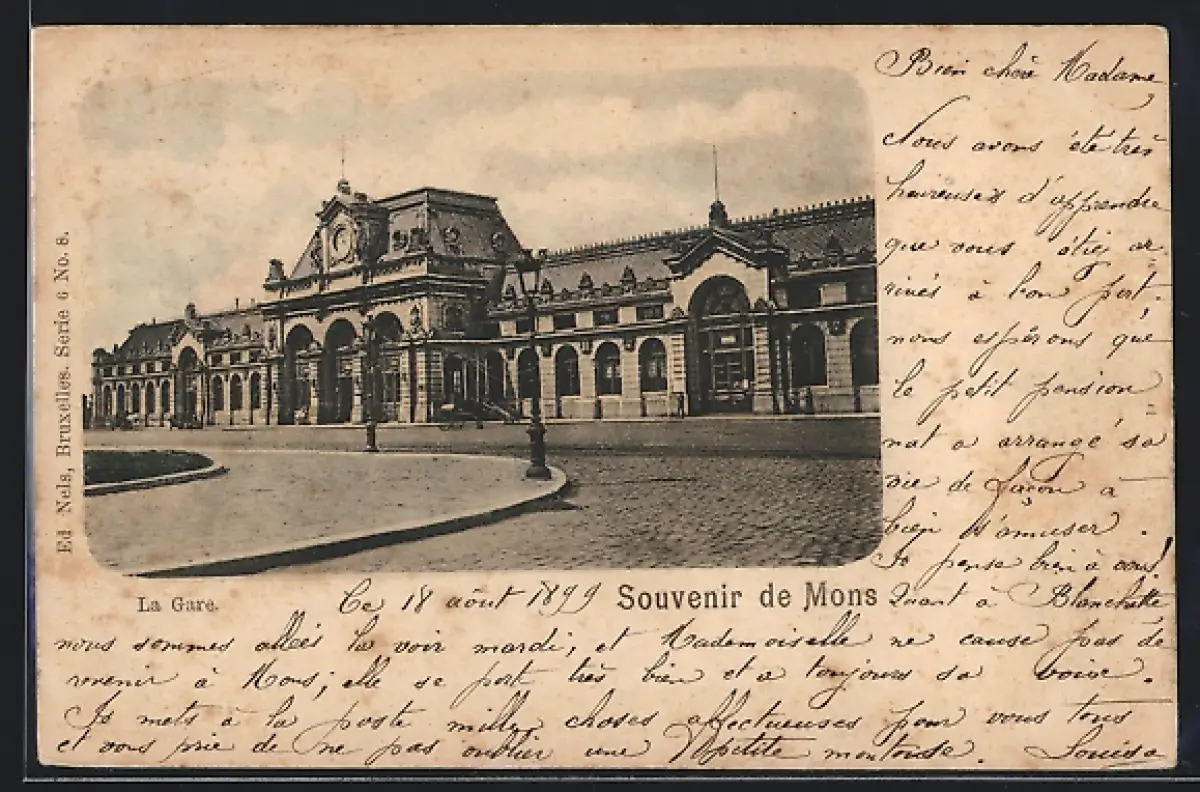 Ed Nels, Bruxelles. Serie 6 No. 8.
Bien chère Madame,
Nous avons été très
heureuses d'apprendre
que vous étiez ar-
rivés à bon port.
nous espérons que
le petit pension
nat a arrangé sa
vie de façon à
bien s'amuser.
Je pense bien à vous!
La Gare.
Ce 18 août 1899
Souvenir de Mons
Quant à Blanchette
nous sommes allées la voir mardi, et Mademoiselle ne cause pas de
revenir à Mons; elle se port très bien et a toujours sa voix.
Je mets à la poste mille choses affectueuses pour vous tous
et vous prie de ne pas oublier une petite montoise. Louisa